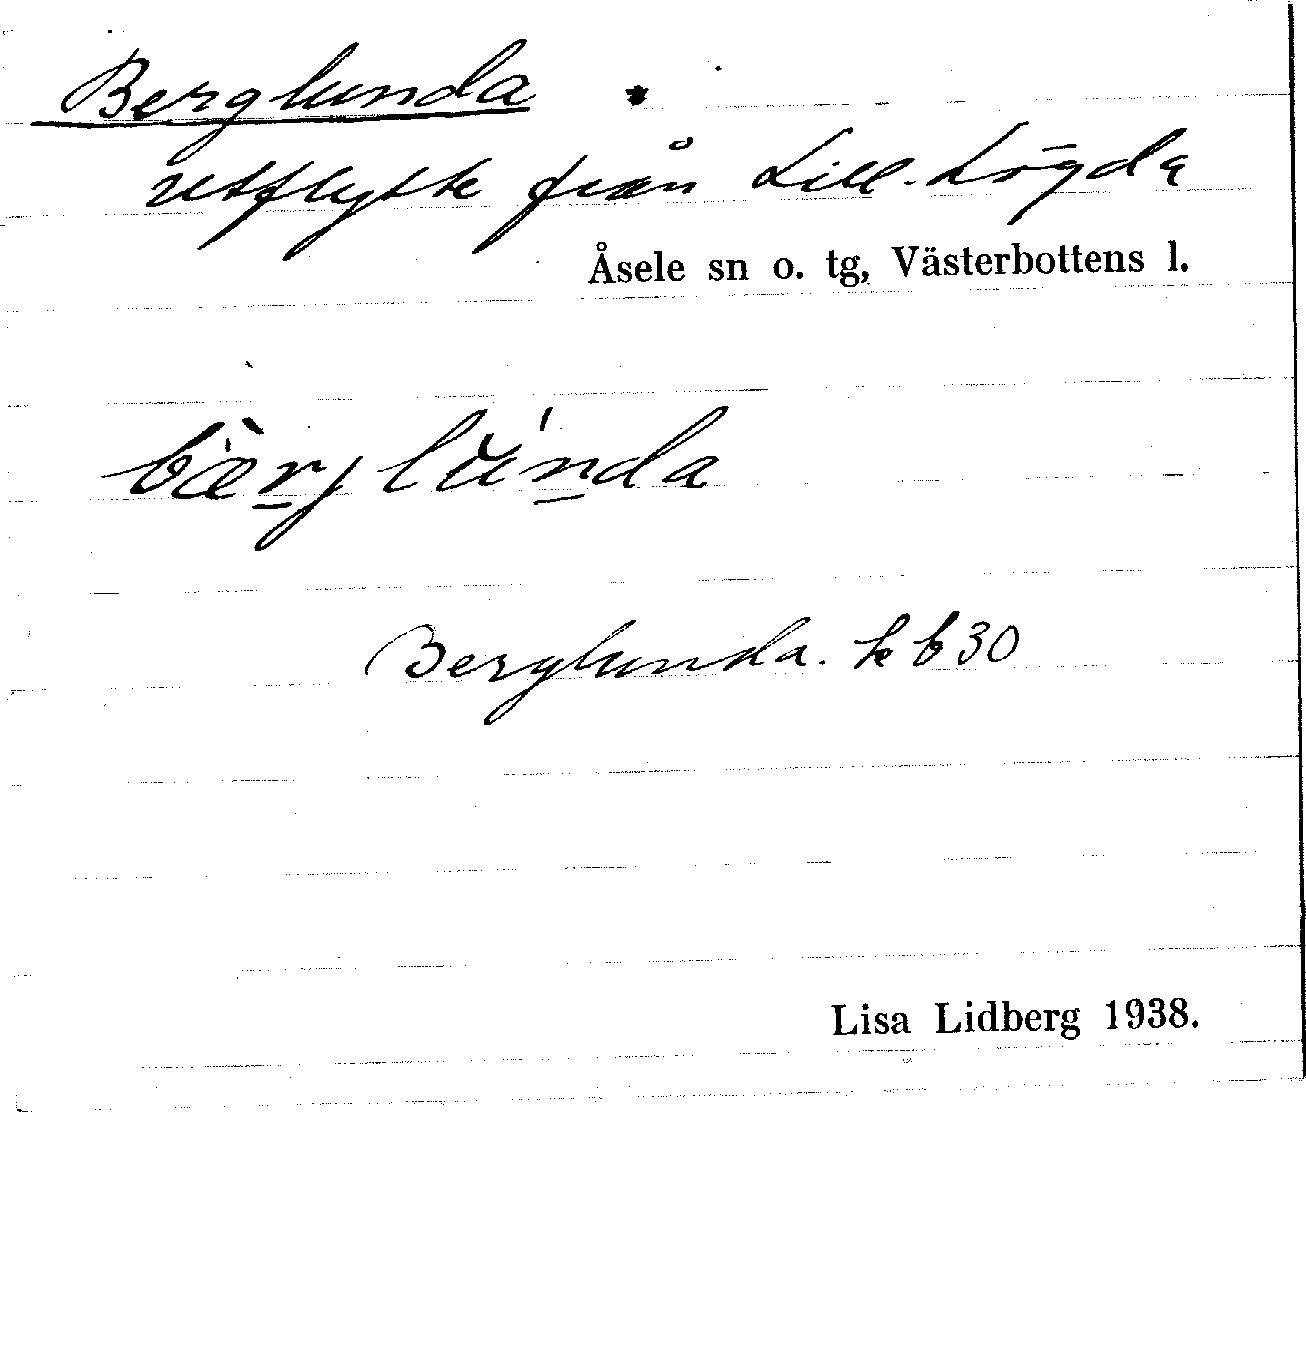 Berglunda *
utflytt från Lill-Lögda
Åsele sn o. tg, Västerbottens l.
bærjlunda
Berglunda. kb 30
Lisa Lidberg 1938.